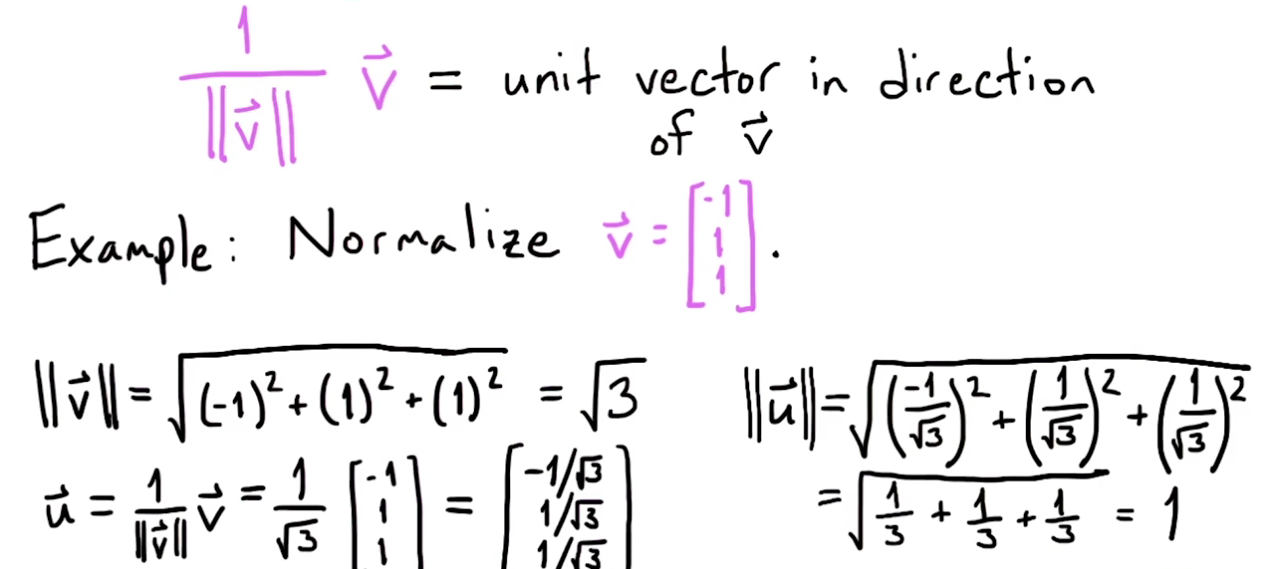 1/||v⃗|| v⃗ = unit vector in direction
of v⃗
Example: Normalize v⃗ = [-1 1 1].
||v⃗|| = √((-1)² + (1)² + (1)²) = √3
u⃗ = 1/||v⃗|| v⃗ = 1/√3 [-1 1 1] = [-1/√3 1/√3 1/√3]
||u⃗|| = √((-1/√3)² + (1/√3)² + (1/√3)²)
= √(1/3 + 1/3 + 1/3) = 1